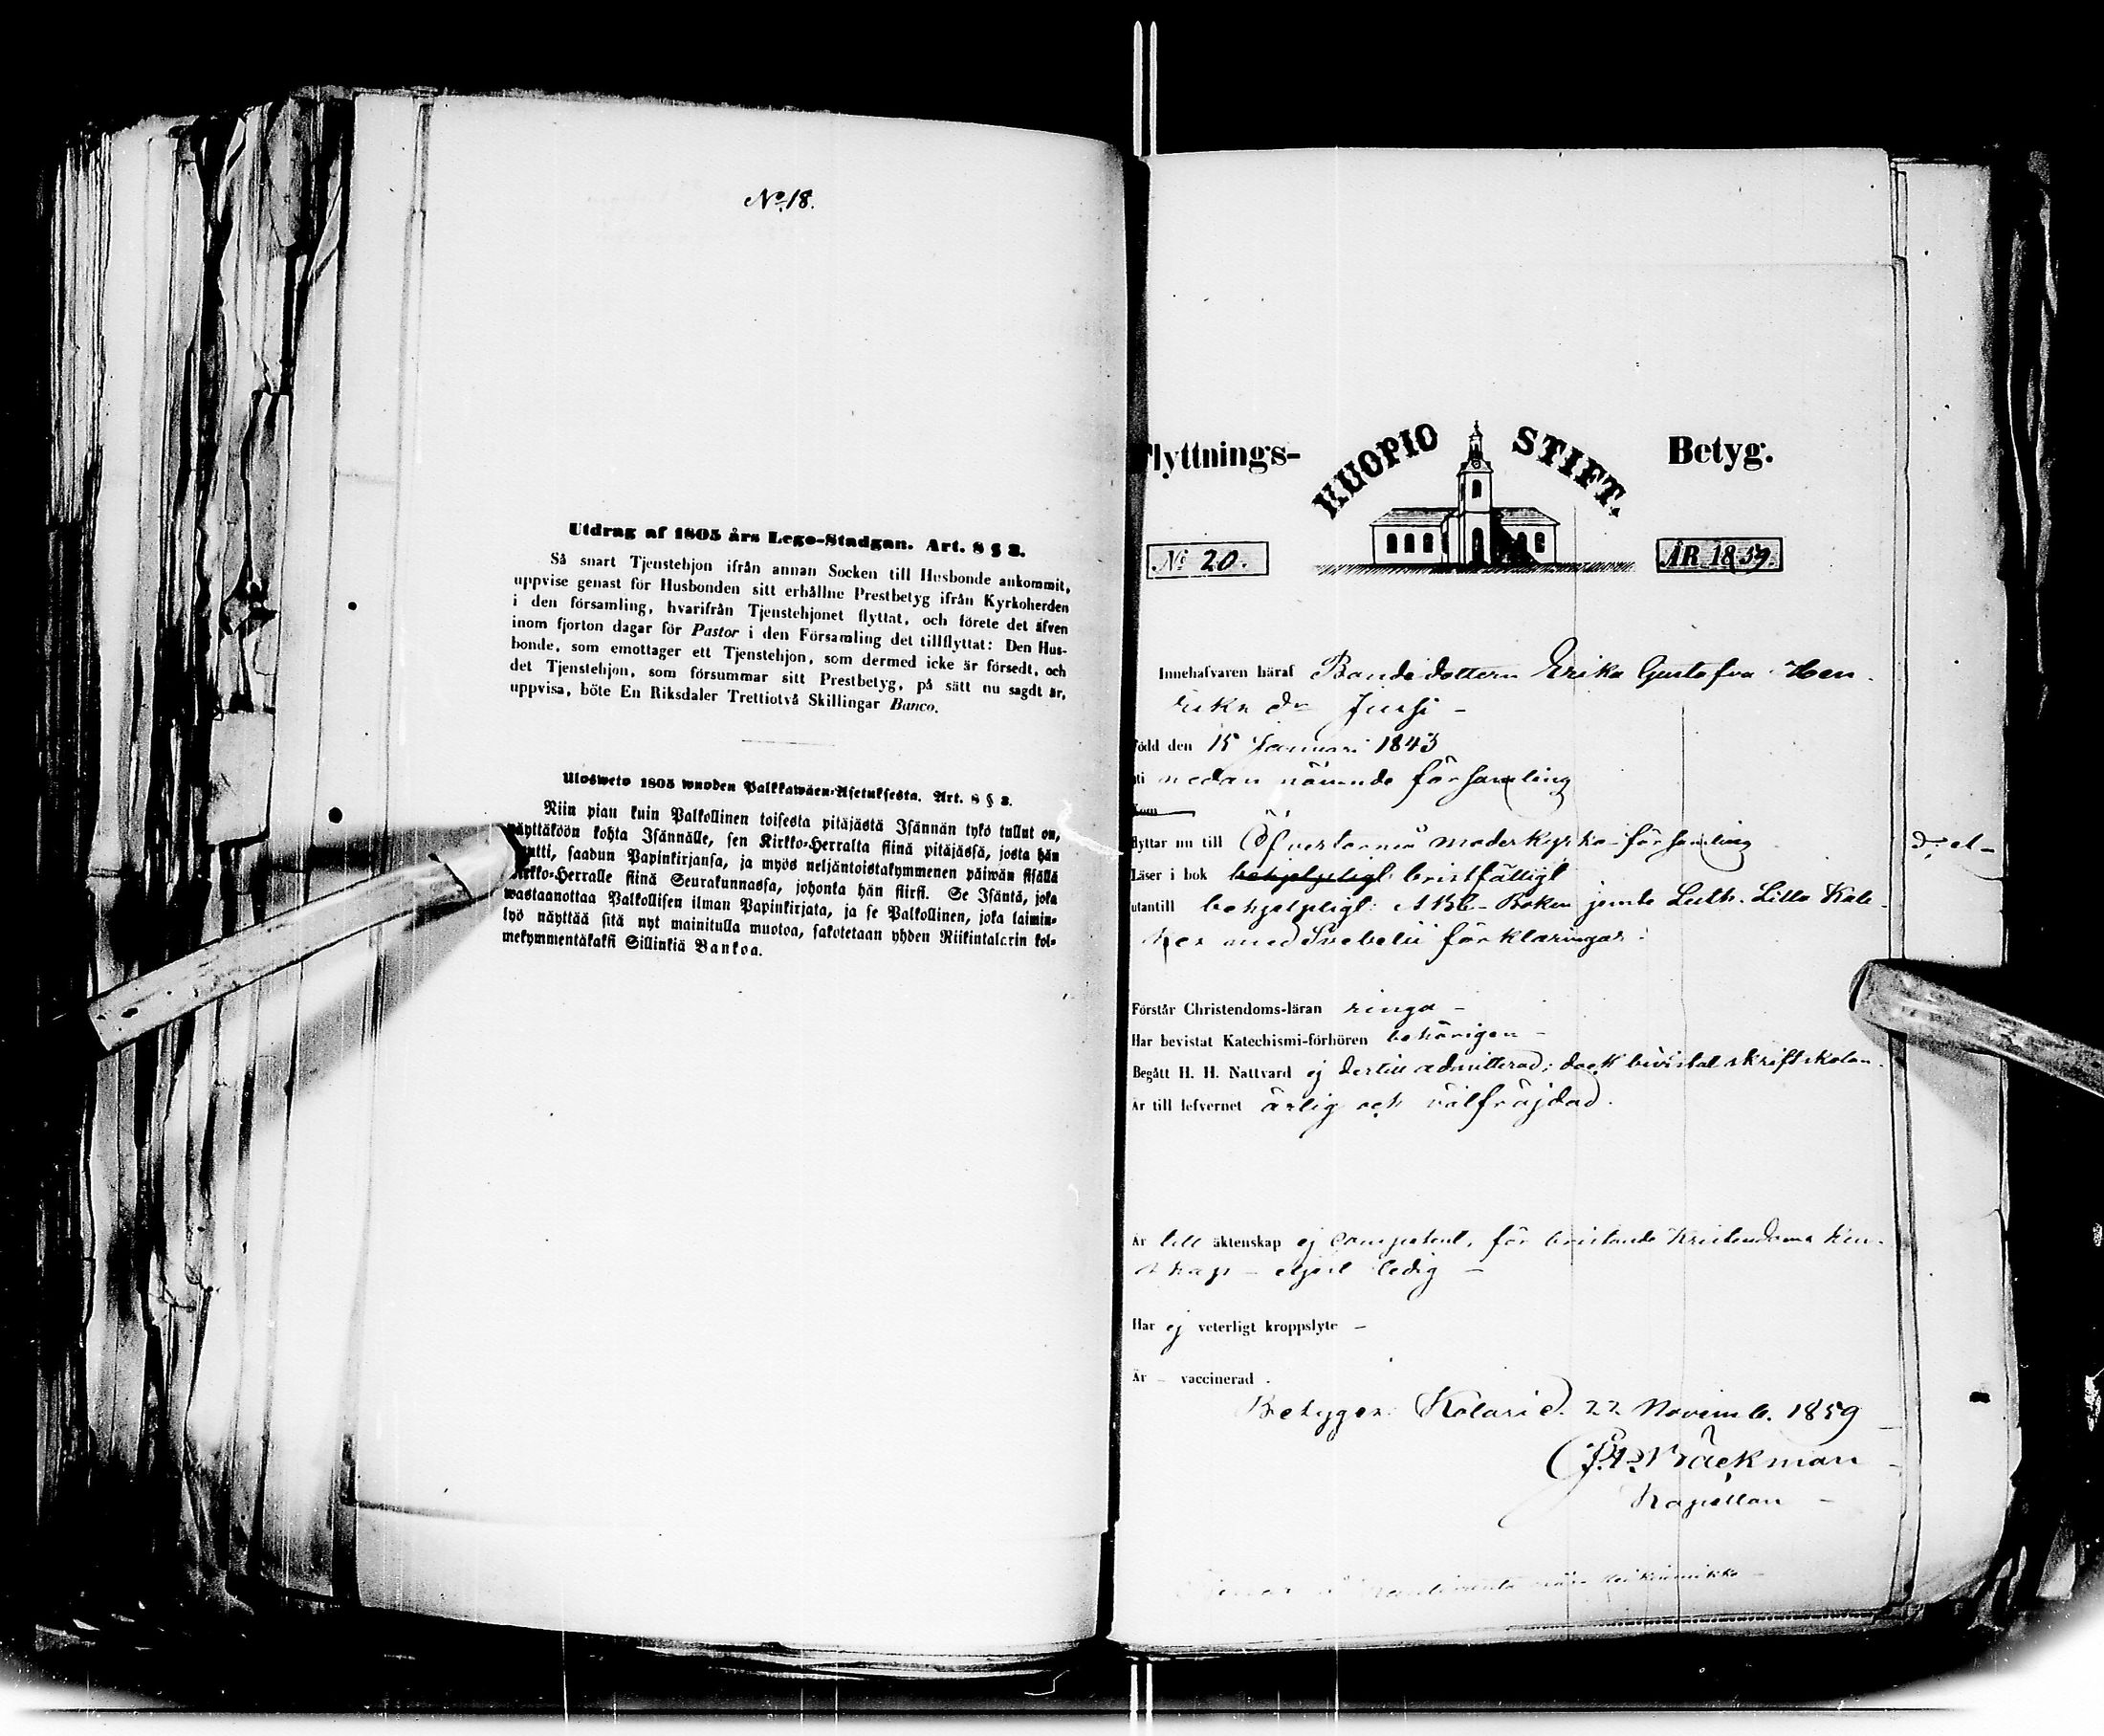 No. 18.
Utdrag af 1805 års Lego-Stadgan. Art. 8 § 3.
Så snart Tjenstehjon ifrån annan Socken till Husbonde ankommit,
uppvise genast för Husbonden sitt erhållne Prestbetyg ifrån Kyrkoherden
i den församling, hvarifrån Tjenstehjonet flyttat, och förete det äfven
inom fjorton dagar för Pastor i den Församling det tillflyttat: Den Hus-
bonde, som emottager ett Tjenstehjon, som dermed icke är försedt, och
det Tjenstehjon, som försummar sitt Prestbetyg, på sätt nu sagdt är,
uppvisa, böte En Riksdaler Trettiotvå Skillingar Banco.
Ulosweto 1805 wuoden Palkkawäen-Asetuksesta. Art. 8 § 3.
Niin pian kuin Palkollinen toisesta pitäjästä Isännän tykö tullut on,
näyttäköön kohta Isännälle, sen Kirkko-Herralta siinä pitäjässä, josta hän
muutti, saadun Papinkirjansa, ja myös neljäntoistakymmenen päiwän sisällä
Kirkko-Herralle siinä Seurakunnassa, johonka hän siirsi. Se Isäntä, joka
wastaanottaa Palkollisen ilman Papinkirjata, ja se Palkollinen, joka laimin-
lyö näyttää sitä nyt mainitulla muotoa, sakotetaan yhden Riikintalarin kol-
mekymmentäkaksi Sillinkiä Bankoa.
Flyttnings- KUOPIO STIFT. Betyg.
No 20. ÅR 1859.
Innehafvaren häraf Bondedottern Erika Gustafva Hen-
riks dr Jussi -
född den 15 Januari 1843
uti nedan nämnde församling
Kom
flyttar nu till Öfvertorneå moderkyrko-församling
Läser i bok behjelpligt bristfälligt
utantill behjelpligt: ABC-Boken jemte Luth. Lilla Kate-
kes med Svebelii förklaringar:
Förstår Christendoms-läran ringa -
Har bevistat Katechismi-förhören behörigen -
Begått H. H. Nattvard ej dertill admitterad; dock bevistat skriftskolan.
Är till lefvernet ärlig och välfräjdad.
Är till äktenskap ej competent, för bristande Kristendoms kun-
skap - eljest ledig -
Har ej veterligt kroppslyte -
Är - vaccinerad.
Betyger. Kolari d. 22 Novemb. 1859
Bäckman
Kapellan -